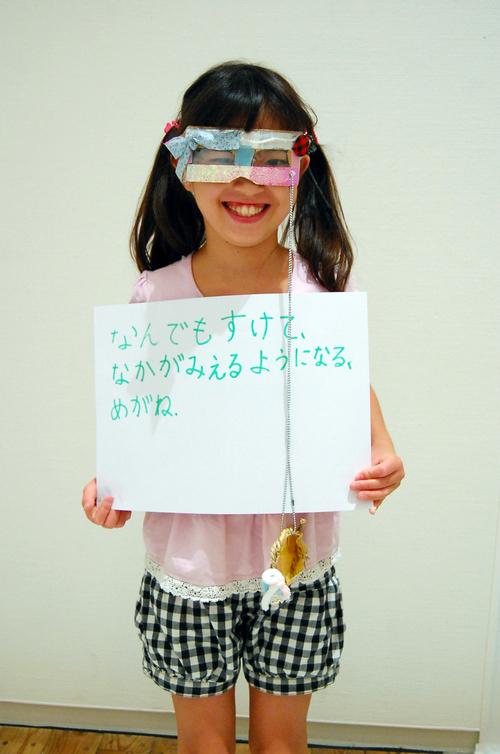 なんでもすけて、
なかがみえるようになる、
めがね.